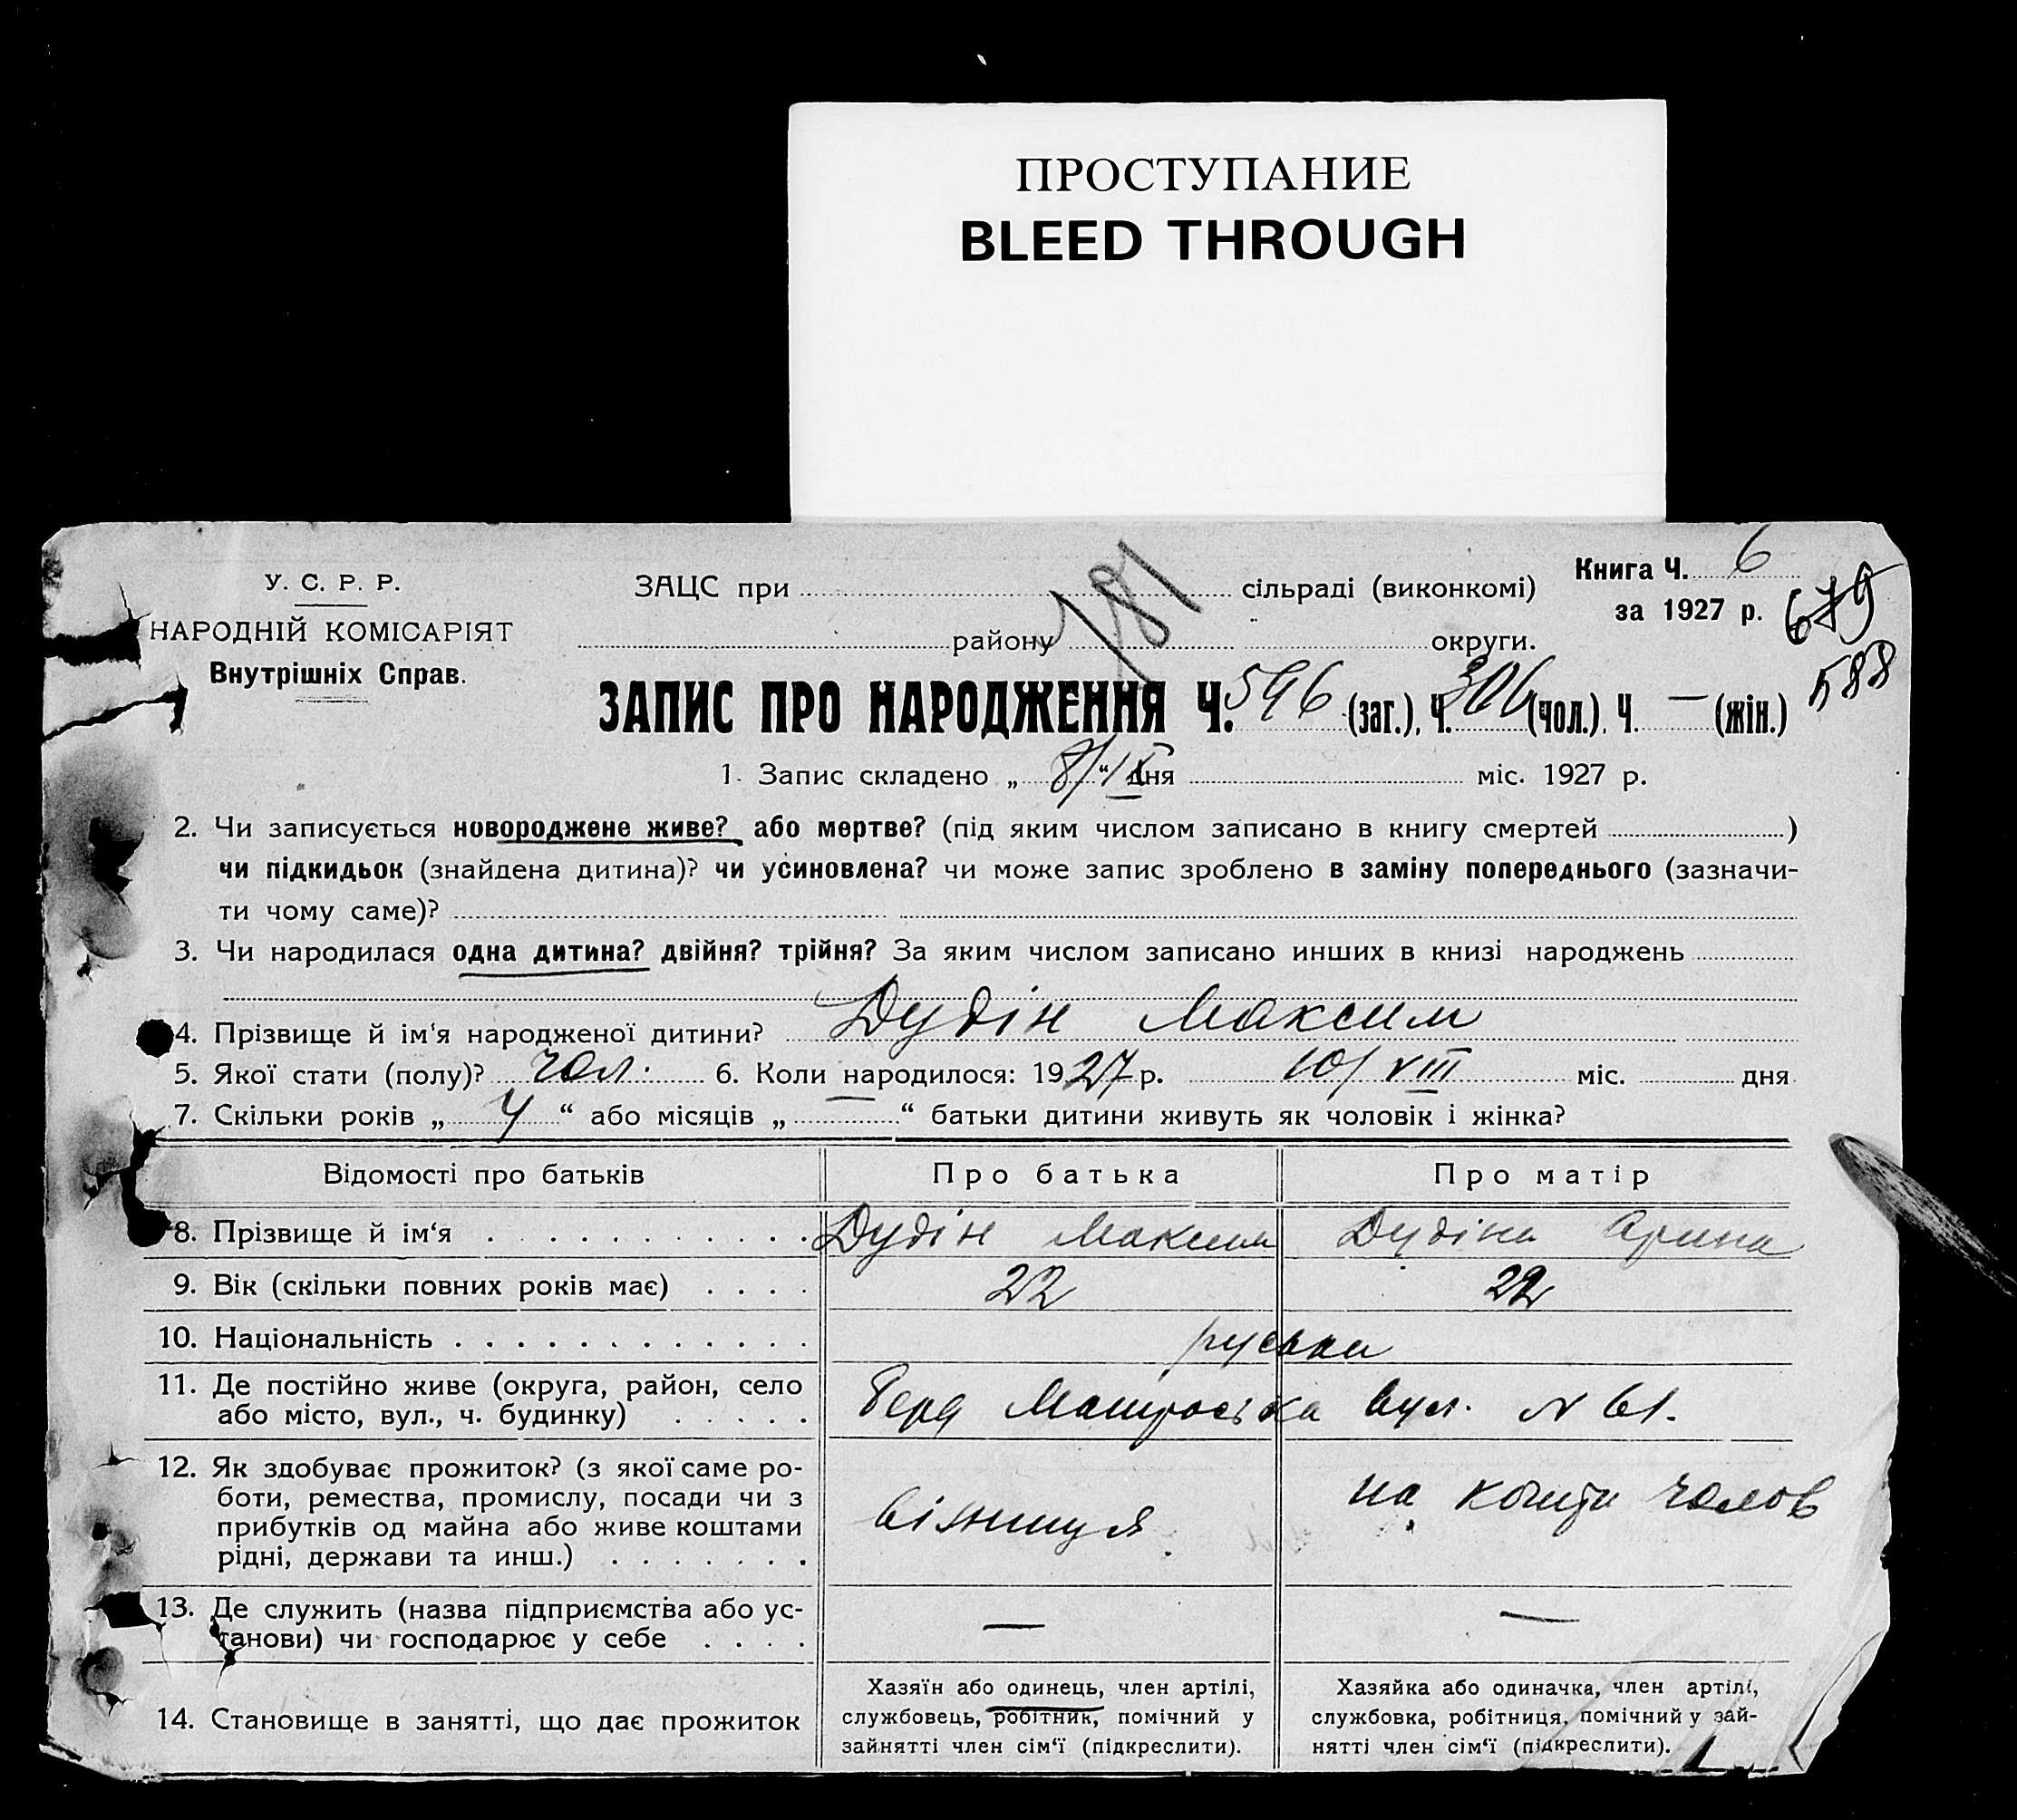 ПРОСТУПАНИЕ
BLEED THROUGH
У. С. Р. Р.
НАРОДНІЙ КОМІСАРІЯТ
Внутрішніх Справ.
ЗАЦС при сільраді (виконкомі)
181
району округи.
Книга Ч. 6
за 1927 р.
679
588
ЗАПИС ПРО НАРОДЖЕННЯ Ч. 596 (заг.), Ч. 306 (чол.), Ч. — (жін.)
1. Запис складено „ 8/IX “ дня міс. 1927 р.
2. Чи записується новороджене живе? або мертве? (під яким числом записано в книгу смертей )
чи підкидьок (знайдена дитина)? чи усиновлена? чи може запис зроблено в заміну попереднього (зазначи-
ти чому саме)?
3. Чи народилася одна дитина? двійня? трійня? За яким числом записано инших в книзі народжень
4. Прізвище й ім‘я народженої дитини? Дудін Максим
5. Якої стати (полу)? чол. 6. Коли народилося: 1927 р. 10/VIII міс. дня
7. Скільки років „ 4 “ або місяців „ — “ батьки дитини живуть як чоловік і жінка?
Відомості про батьків Про батька Про матір
8. Прізвище й ім‘я Дудін Максим Дудіна Арина
9. Вік (скільки повних років має) 22 22
10. Національність руські
11. Де постійно живе (округа, район, село
або місто, вул., ч. будинку) Берд Матроська вул. № 61.
12. Як здобуває прожиток? (з якої саме ро-
боти, ремества, промислу, посади чи з
прибутків од майна або живе коштами
рідні, держави та инш.)
на кошти чолов
13. Де служить (назва підприємства або ус-
танови) чи господарює у себе — —
14. Становище в занятті, що дає прожиток
Хазяїн або одинець, член артілі,
службовець, робітник, помічний у
зайнятті член сім‘ї (підкреслити).
Хазяйка або одиначка, член артілі,
службовка, робітниця, помічний у зай-
нятті член сім‘ї (підкреслити).